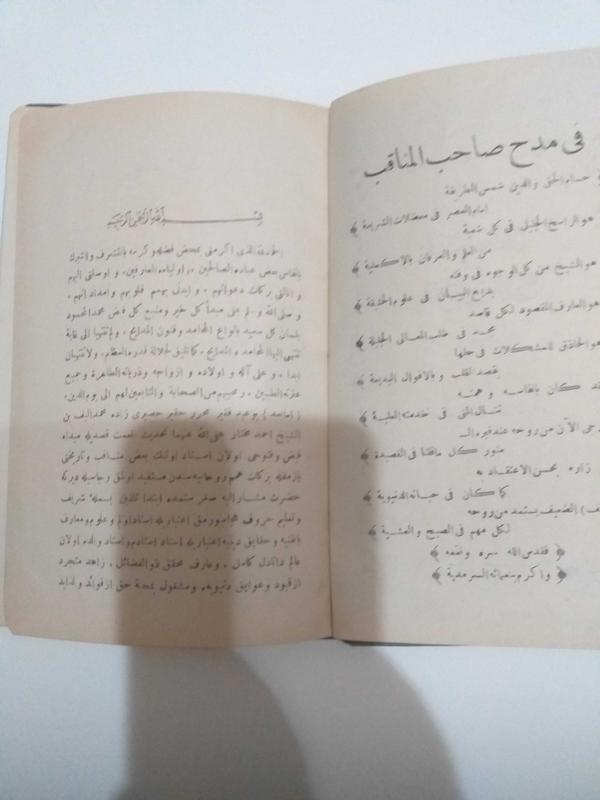 فى مدح صاحب المناقب
حسام الحق والدين شمس الطريقة
امام العصر فى معضلات الشريعة
هو الراسخ الجليل فى كل شعبة
من العلم والعرفان بالاكملية
هو الشيخ من كل الوجوه فى وقته
البيان فى علوم الحقيقة
هو العارف المقصود لكل قاصد
محمد فى طلب المعالى الجليلة
هو الحاذق للمشكلات فى حلها
بقصد القلب وبالاقوال البديعة
كان بانفاسه و همته
تنال المنى فى خدمته العلية
الآن من روحه عند قبره الـ
منور كل ما قلنا فى القصيدة
زاره بحسن الاعتقاد به
كما كان فى حياته الدنيوية
الضعيف يستمد من روحه
لكل مهم فى الصبح والعشية
﴿ فقدس الله سره ونفعه ﴾
﴿ واكرم بنعمائه السرمدية ﴾
بسم الله الرحمن الرحيم
الحمد لله الذى اكرمنى بمحض فضله وكرمه بالتشرف والتبرك
بانفاس بعض عباده الصالحين ، و اوليائه العارفين ، و اوصلنى اليهم
و انالنى بركات دعواتهم ، و ايدنى بهمم قلوبهم و امدادانهم ،
و صلى الله و سلم على مبدأ كل خير ومنبع كل فيض محمد المحمود
بلسان كل سعيد بانواع المحامد وفنون المدايح ، ولم تنتها الى غاية
تنتهى اليها المحامد والمدايح ، كما تليق لجلالة قدره العظام ، ولانتهان
ابدا ، و على آله و اولاده و ازواجه و ذرياته الطاهرة وجميع
عترته الطيبين ، و صحبهم من الصحابة و التابعين لهم الى يوم الدين ،
( اما بعد ) بو عبد فقير محرر حقير حصيرى زاده محمد اليف بن
الشيخ احمد مختار عفى الله عنهما تحديث نعمت قصديله مبداء
فيض و فتوحى اولان استاد بعض مناقب و تاريخنى
يازمغله بركات همم روحانيه سندن مستفيد اولمق
حضرت مشار اليه صغر سنمده ابتدا تلقين بسمله شريف
وتعليم حروف هجا صورمق اعتباريله استادم و علوم و معارف
باطنيه و حقايق دينيه اعتباريله استاد استادم و استاد والدم اولان
عالم كامل ، و عارف محقق ذو الفضائل ، زاهد متجرد
از قيود و عوايق دنيويه و مشغول بمحبة حق از فوائد و لذايذ